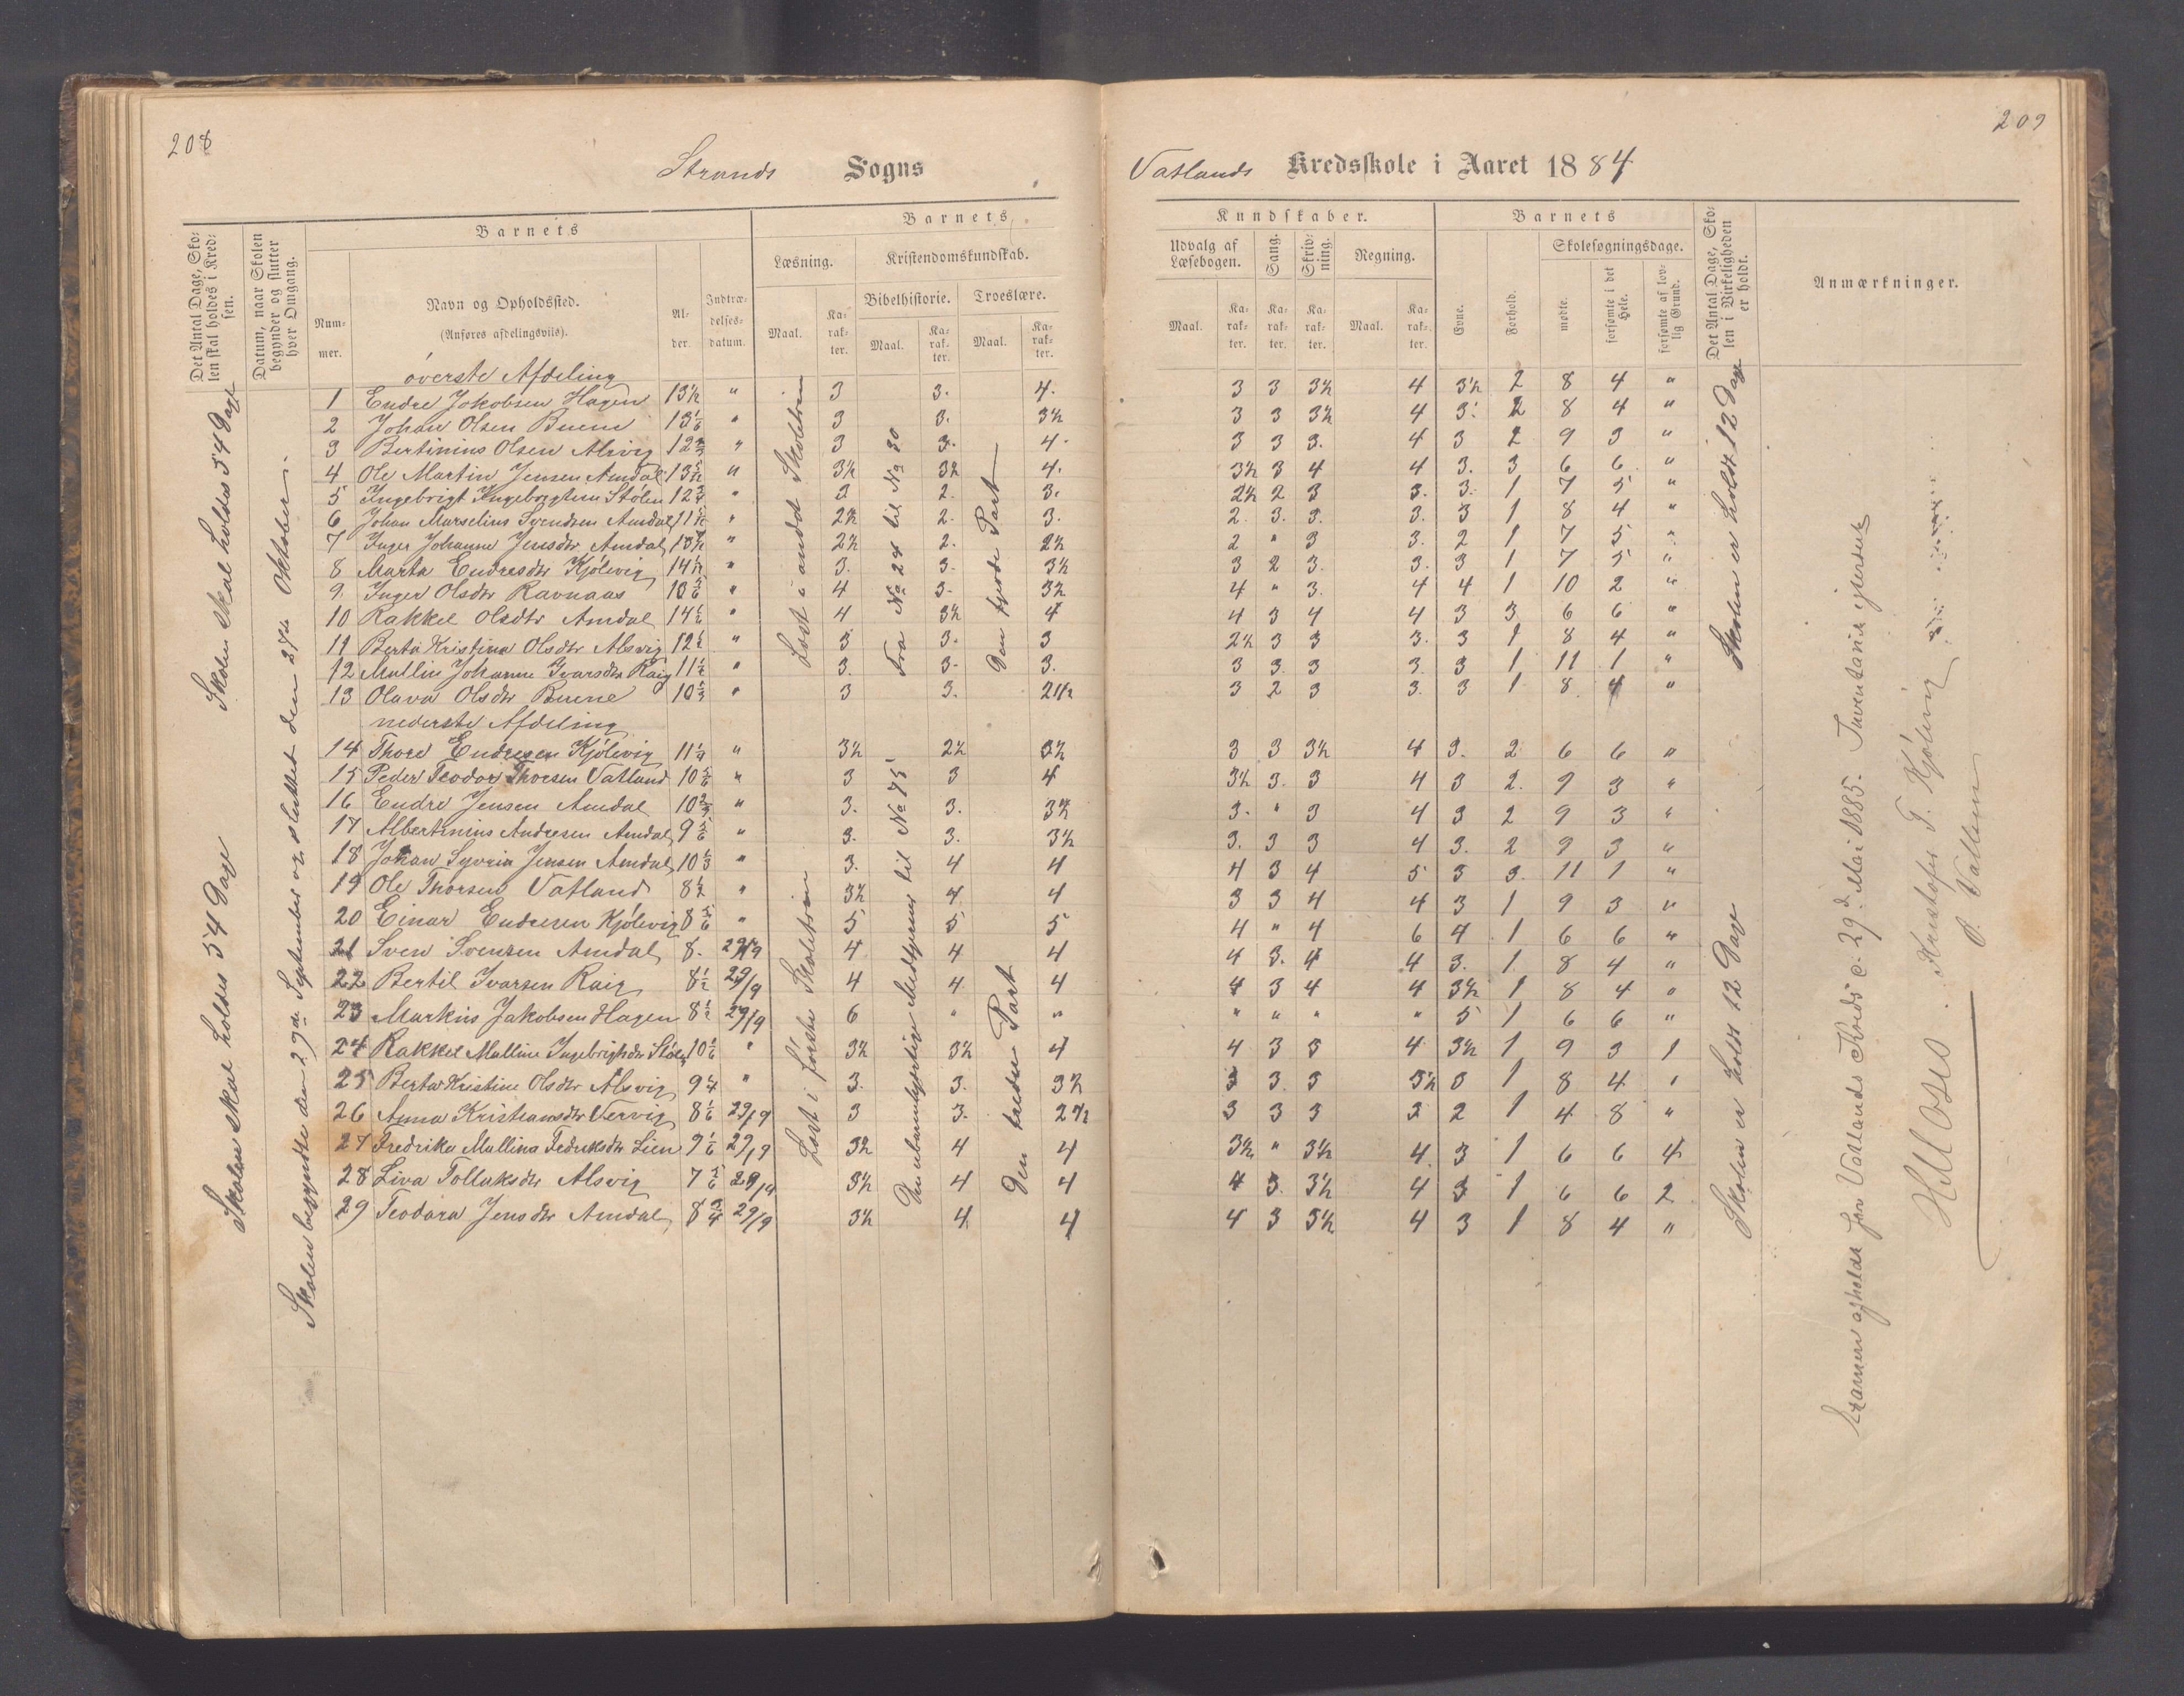 208
209
Strands Sogns
Vatlands Kredsskole i Aaret 1884
Det Antal Dage, Skolen skal holdes i Kredsen.
Datum, naar Skolen begynder og slutter hver Omgang.
Barnets
Nummer.
Navn og Opholdssted.
(Anføres afdelingsviis).
Alder.
Indtrædelsesdatum.
Barnets
Læsning.
Kristendomskundskab.
Bibelhistorie.
Troeslære.
Maal.
Karakter.
Maal.
Karakter.
Maal.
Karakter.
Kundskaber.
Udvalg af Læsebogen.
Sang.
Skrivning.
Regning.
Maal.
Karakter.
Karakter.
Karakter.
Maal.
Karakter.
Barnets
Evne.
Forhold.
Skolesøgningsdage.
mødte.
forsømte i det Hele.
forsømte af lovlig Grund.
Det Antal Dage, Skolen i Virkeligheden er holdt.
Anmærkninger.
øverste Afdeling
1 Endre Jakobsen Hagen 13½ " 3 3. 4. 3 3 3½ 4 3½ 2 8 4 "
2 Johan Olsen Buene 13 1/6 " 3 3. 3½ 3 3 3½ 4 3. 2 8 4 "
3 Bertinius Olsen Alsvig 12 2/3 " 3 3. 4. 3 3 3. 4 3 2 9 3 "
4 Ole Martin Jensen Amdal 13 " 3½ 3½ 4. 3½ 3 4 4 3. 3 6 6 "
5 Ingebrigt Ingebrigtsen Stølen 12 3/4 " 2 2. 3. 2½ 2 3 3. 3. 1 7 5 "
6 Johan Marselius Svendsen Amdal 11 " 2½ 2. 3. 2. 3. 3. 3. 3 1 8 4 "
7 Inger Johanne Jensdtr Amdal " 2½ 2. 2½ 2 " 3 3. 2 1 7 5 "
8 Marta Endresdtr Kjølevig 14 " 3. 3. 3½ 3 2 3. 3. 3 1 7 5 "
9. Inger Olsdtr Ravnaas 10 5/6 " 4 3. 3½ 4 " 3. 4 4 1 10 2 "
10 Rakkel Olsdtr Amdal 14 1/6 " 4 3½ 4 4 3 4 4 3 3 6 6 "
11 Berta Kristina Olsdtr Alsvig 12 " 3 3. 3 2½ 3 3 3. 3 1 8 4 "
12 Mallin Johanne Ivarsdtr Raig 11½ " 3. 3. 3. 3 3. 3 3. 3 1 11 1 "
13 Olava Olsdtr Buene 10 " 3 3. 2½ 3 2 3 3. 3 1 8 4 "
nederste Afdeling
14 Thore Endresen Kjølevig 11 " 3½ 2½ 3½ 3 3 3½ 4 3. 2 6 6 "
15 Peder Teodor Thorsen Vatland 10 5/6 " 3 3 4 3½ 3. 3 4 3 2. 9 3 "
16 Endre Jensen Amdal 10 2/3 " 3. 3. 3½ 3. " 3 4 3 2 9 3 "
17 Albertinius Andresen Amdal 9 5/6 " 3. 3. 3½ 3. 3 3 4 3. 2 9 3 "
18 Johan Syvrin Jensen Amdal 10 1/3 " 3. 4 4 4 3 4 5 3 3. 11 1 "
19 Ole Thorsen Vatland 8½ " 3½ 4 4 3 3 4 4 3 1 9 3 "
20 Einar Endresen Kjølevig 8 5/6 " 5 5 5 4 " 4 6 4 1 6 6 "
21 Sven Svensen Amdal 8. 29/9 4 4 4 4 3. 4 4 3. 1 8 4 "
22 Bertil Ivarsen Raig 8½ 29/9 4 4 4 4 3 4 4 3½ 1 8 4 "
23 Markus Jakobsen Hagen 8½ 29/9 6 " " " " " " 5 1 6 6 "
24 Rakkel Malline Ingebrigtsdtr Stølen 10 1/6 " 3½ 3½ 4 4 3 3 4 3½ 1 9 3 1
25 Berta Kristine Olsdtr Alsvig 9 1/4 " 3. 3. 3½ 3 3. 3 3½ 3 1 8 4 "
26 Anna Kristiansdtr Tervig 8 1/6 29/9 3 3. 2½ 3 3 3 3 2 1 4 8 "
27 Fredrika Mallina Fedriksdtr Lien 9 1/6 29/9 3½ 4 4 3½ " 3½ 4 3 1 6 6 4
28 Liva Tollaksdtr Alsvig 7 5/6 29/9 3½ 4 4 4 3. 3½ 4 3 1 6 6 2
29 Teodora Jensdtr Amdal 8 3/4 29/9 3½ 4 4 4 3 3½ 4 3 1 8 4 "
Skolen skal holdes 54 Dage
Skolen skal holdes 54 Dage
Skolen begyndte den 29de September og sluttet den Oktober.
Læst i andet Skoletrin
Læst i første Skoletrin
Fra No 24 til No 30
til No 45
Den fjerde Part
Den tredie Part
Skolen er holdt 12 Dage
Skolen er holdt 12 Dage
Examen afholdt for Vatlands Kreds d. 29d Mai 1885. Inventariet efterseet.
Kristofer T. Kjølevig